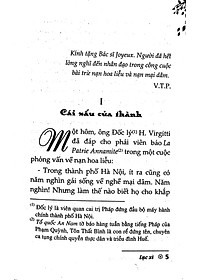 Kính tặng Bác sĩ Joyeux. Người đã hết
lòng nghĩ đến nhân đạo trong công cuộc
bài trừ nạn hoa liễu và nạn mại dâm.
V.T.P.
I
Cái xấu của thành
Một hôm, ông Đốc lý(1) H. Virgitti
đã đáp cho phái viên báo La
Patrie Annamite(2) trong một cuộc
phỏng vấn về nạn hoa liễu:
- Trong thành phố Hà Nội, ít ra cũng có
năm nghìn gái sống về nghề mại dâm. Năm
nghìn! Nhưng làm thế nào biết họ cho khắp
(1) Đốc lý là viên quan cai trị Pháp đứng đầu bộ máy hành
chính thành phố Hà Nội.
(2) Tổ quốc An Nam tờ báo hàng tuần bằng tiếng Pháp của
Phạm Quỳnh, Tôn Thất Bình là con rể đứng tên, chuyên
ca tụng chính quyền thực dân và triều đình Huế.
Lục xì 5